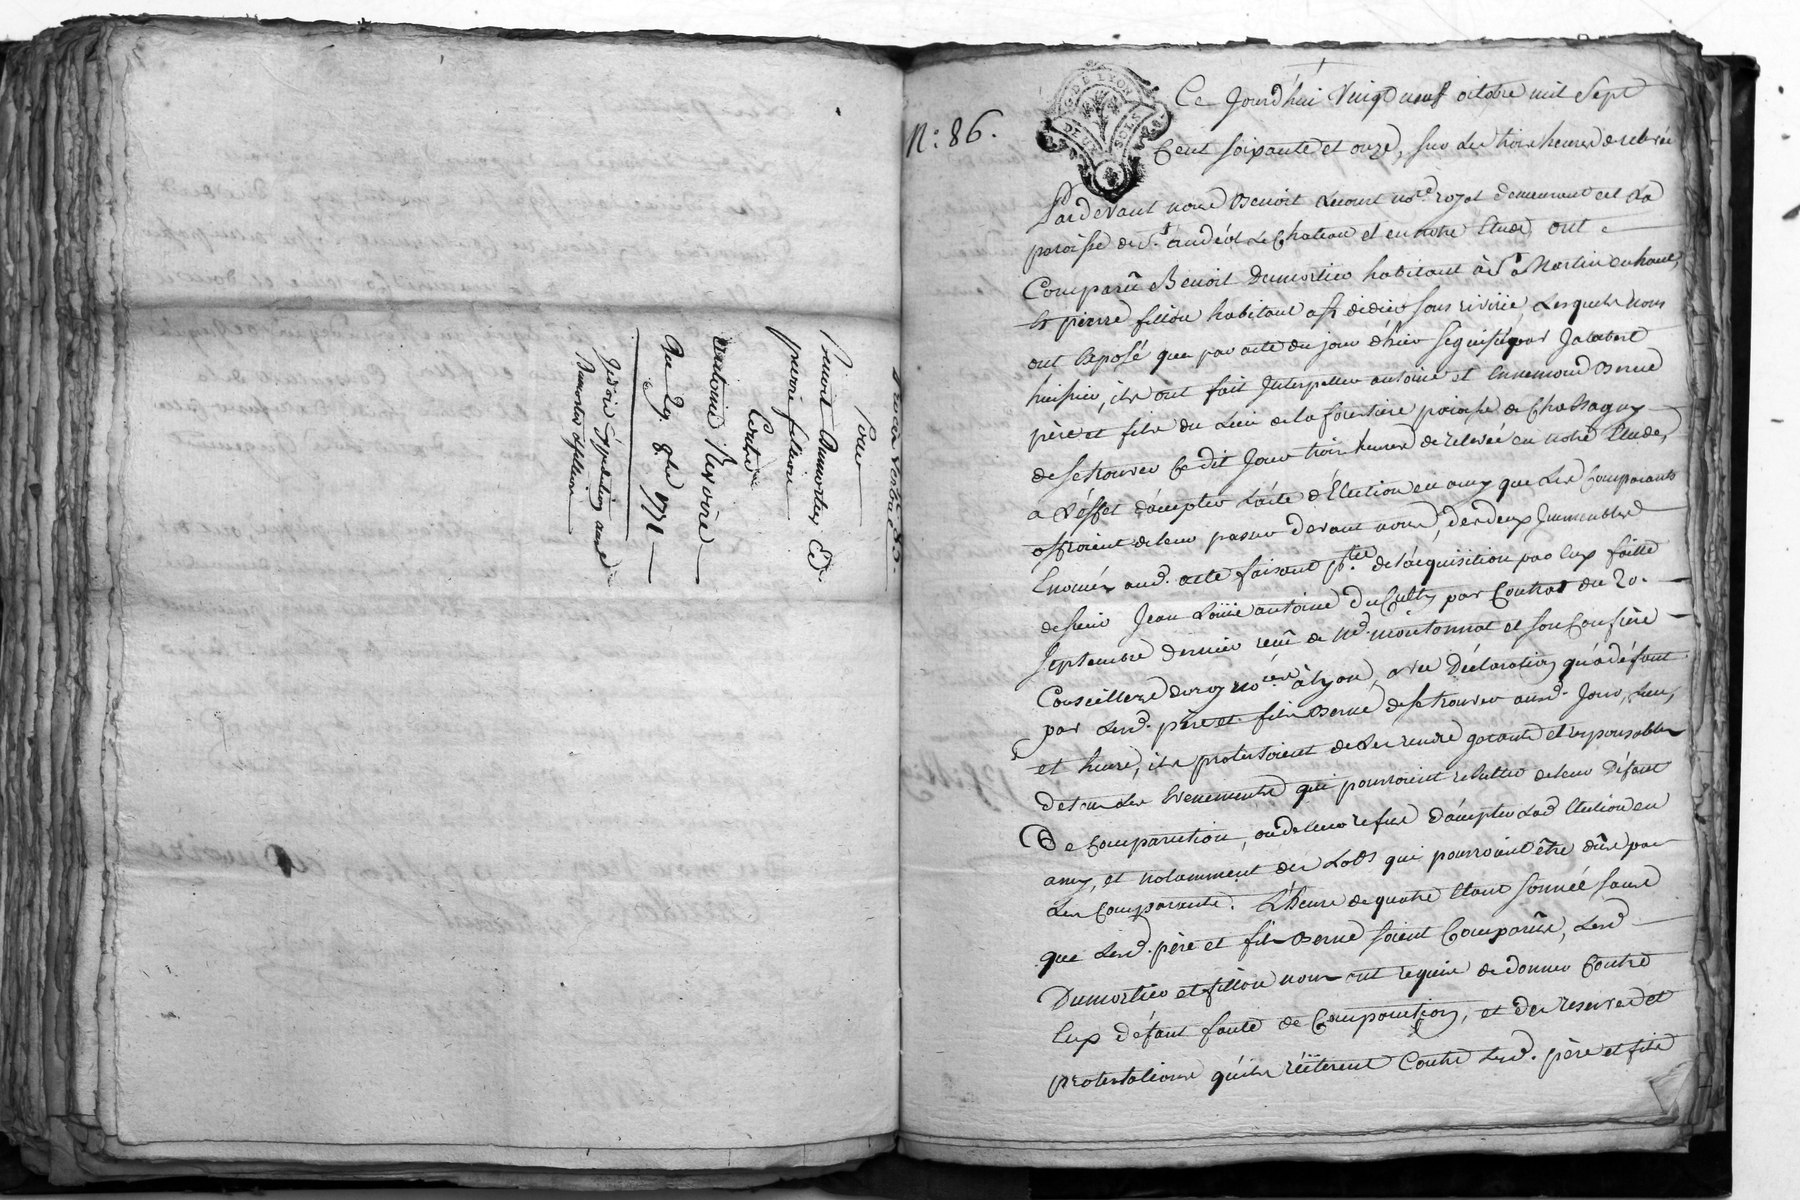 Pour
Benoit Dumortier Et
pierre fillion
Contre
antoine Revoire
Du 29. 8bre 1771
Jedois Expedition aux d.
Dumortier & fillion
N.: 86.
G. DE LYON
DEUX SOLS
Ce Jourd'hui Vingt neuf octobre mil Sept
Cent soixante et onze, sur les trois heures de relevée
Pardevant nous Benoit Lecourt no.re royal demeurant en la
paroisse de S.t andéol Le Chateau et en notre Etude, ont
Comparû Benoit Dumortier habitant à S.t Martin en haut,
Et pierre fillion habitant a St didier sous riviric, Lesquels nous
ont Exposé que par acte du jour d'hier Signifié par Jalabert
huissier, ils ont fait Interpeller antoine et Ennemond Berne
père et fils du Lieu de la forestière paroisse de Chassagny
de se trouver Ce dit Jour trois heures de relevée en notre Etude,
a L'éffet d'accepter L'acte d'Election en amy que Les Comparants
offroient de leur passer devant nous, des deux Immeubles
Enoncés aud. acte faisant p.tie de l'acquisition par Eux faitte
de sieur Jean Loüis antoine Du Culty par Contrat du 20.
Septembre dernier recû de M.e montonnat et son Confrère
Conseillers du roy no.res à Lyon, avec Déclaration qu'à défaut
par Lesd. père et fils Berne de se trouver ausd. Jour, Lieu,
et heure, ils protestoient de Les rendre garants et responsables
de tous Les Evenements qui pourroient résulter de leur Défaut
De Comparution, ou de leur refus D'accepter Lad. Election en
amy, et notamment des Lods qui pourroient être dûs par
Les Comparants. L'heure de quatre Etant Sonnée sans
que Lesd. père et fils Berne soient Comparûs, Lesd.
Dumortier et fillion nous ont requis de donner Contre
Eux défaut faute de Comparution, et des reserves et
protestations qu'ils réïterent Contre Lesd. père et fils